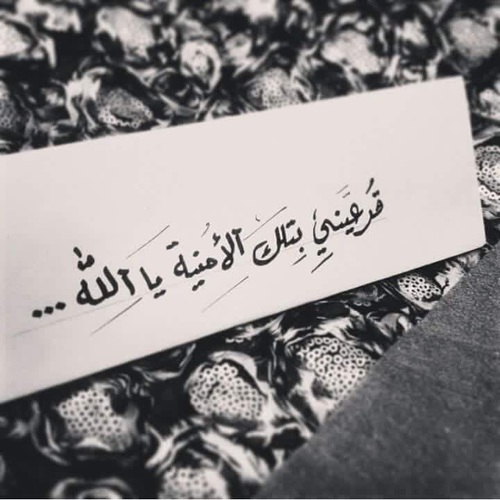 قُر عَيني بِتلك الأمنية يا الله ...